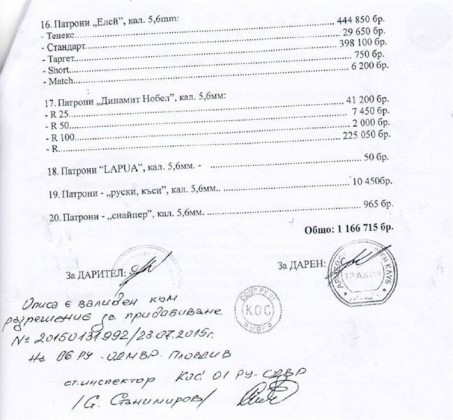 16. Патрони „Елей“, кал. 5,6mm: 444 850 бр.
- Тенекс 29 650 бр.
- Стандарт 398 100 бр.
- Таргет 750 бр.
- Short 6 200 бр.
- Match
17. Патрони „Динамит Нобел“, кал. 5,6мм:
- R 25 41 200 бр.
- R 50 7 450 бр.
- R 100 2 000 бр.
- R 225 050 бр.
18. Патрони “LAPUA”, кал. 5,6мм. - 50 бр.
19. Патрони - „руски, къси”, кал. 5,6мм.. 10 450бр.
20. Патрони - „снайпер”, кал. 5,6мм. 965 бр.
Общо: 1 166 715 бр.
За ДАРИТЕЛ:
За ДАРЕН:
КОС
Описа е валиден към
разрешение за придобиване
№ 20150131992/23.07.2015г.
На 06 РУ - ОДМВР - Пловдив
ст. инспектор КОС 01 РУ-СДВР
/С. Станимиров/